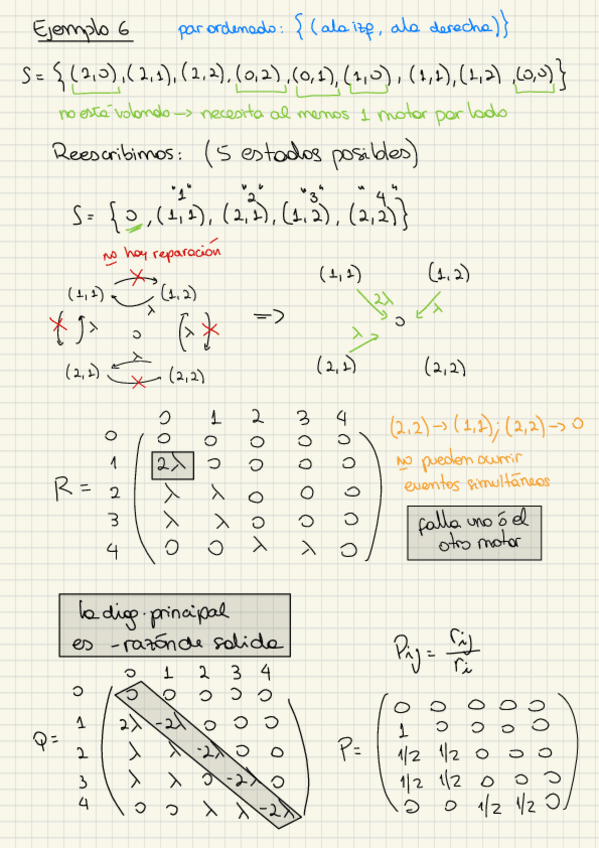 Ejemplo 6 par ordenado: { (ala izq, ala derecha)}
S = { (2,0), (2,1), (2,2), (0,2), (0,1), (1,0), (1,1), (1,2), (0,0)}
no está volando → necesita al menos 1 motor por lado
Reescribimos: (5 estados posibles)
"1" "2" "3" "4"
S = { 0, (1,1), (2,1), (1,2), (2,2)}
no hay reparación
(1,1) (1,2)
λ
λ 0 λ
λ
(2,1) (2,2)
=>
(1,1) (1,2)
2λ λ
0
λ
(2,1) (2,2)
0 1 2 3 4
0 0 0 0 0 0
1 2λ 0 0 0 0
R = 2 λ λ 0 0 0
3 λ λ 0 0 0
4 0 0 λ λ 0
(2,2) → (1,1); (2,2) → 0
no pueden ocurrir
eventos simultáneos
falla uno ó el
otro motor
la diag. principal
es -razón de salida
Pij = rij / ri
0 1 2 3 4
0 0 0 0 0 0
1 2λ -2λ 0 0 0
Q = 2 λ λ -2λ 0 0
3 λ λ 0 -2λ 0
4 0 0 λ λ -2λ
0 0 0 0 0
1 0 0 0 0
P = 1/2 1/2 0 0 0
1/2 1/2 0 0 0
0 0 1/2 1/2 0